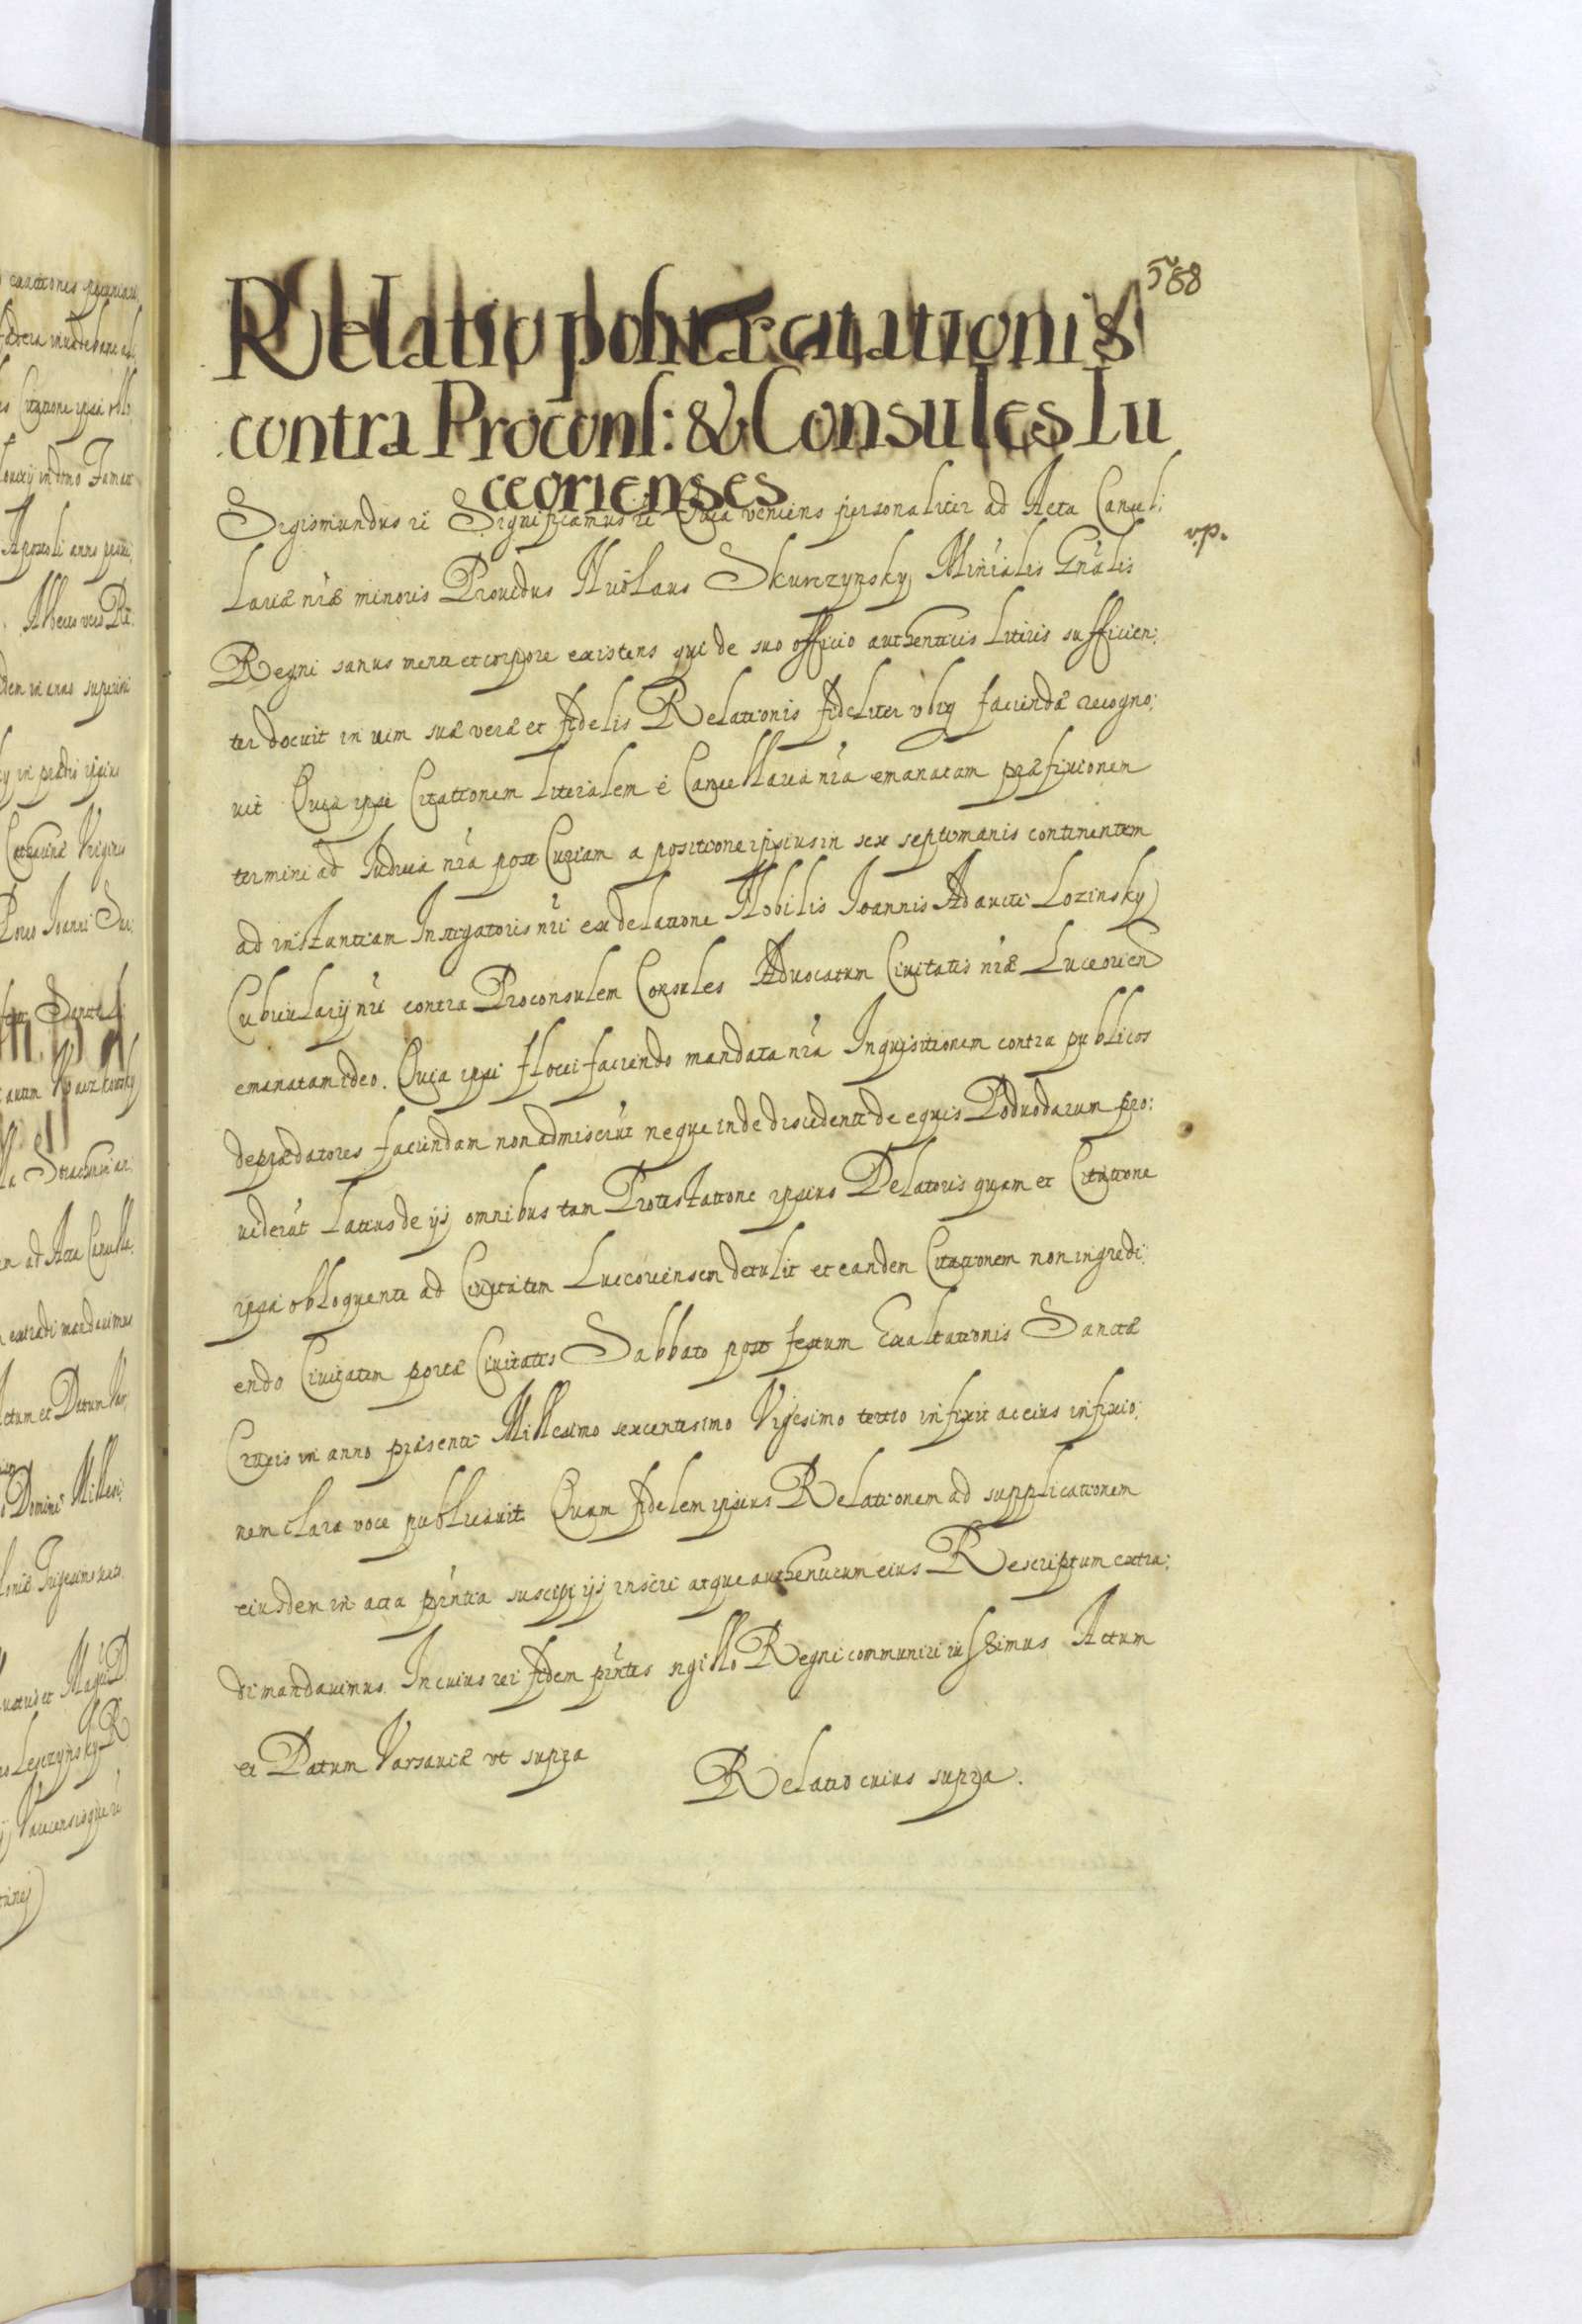 588
Relatio positæ citationis
contra Proconſ: & Consules Lu
ceorienses
Sigismundus r̃c Significamus r̃c Quia veniens personaliter ad Acta Cancel:
v.p.
lariæ nr̃æ minoris Prouidus Nicolaus Skurczynsky Mini̇alis Gnãlis
Regni sanus mente et corpore existens qui de suo officio authenticis literis sufficien:
ter docuit in uim suæ veræ et fidelis Relationis fideliter vbiq faciendæ recogno:
uit Quia ipse Citationem literalem é Cancellaria nr̃a emanatam præfixionem
termini ad Iudicia nr̃a post Curiam a positione ipsius in sex septimanis continentem
ad instantiam Instigatoris nr̃i ex delatione Nobilis Ioannis Adaucti Lozinsky
Cubicularij nr̃i contra Proconsulem Consules Aduocatum Ciuitatis nr̃æ Luceorien
emanatam ideo. Quia ipsi flocci faciendo mandata nr̃a Inquisitionem contra publicos
deprædatores faciendam non admiserũt neque inde discedenti de equis Poduodarum pro:
uiderũt latius de ijs omnibus tam Protestatione ipsius Delatoris quam et Citatione
ipsa obloquente ad Ciuitatem Luceoriensem detulit et eandem Citationem non ingredi:
endo Ciuitatem portæ Ciuitatis Sabbato post festum Exaltationis Sanctæ
Crucis in anno præsenti Millesimo sexcentesimo Vigesimo tertio infixit ac eius infixio:
nem clara voce publicauit Quam fidelem ipsius Relationem ad supplicationem
eiusdem in acta pñtia suscipi ijs inscri atque authenticum eius Rescriptum extra:
di mandauimus. In cuius rei fidem pñtes sigillo Regni communiri iussimus Actum
et Datum Varsauiæ vt supra
Relatio cuius supra.